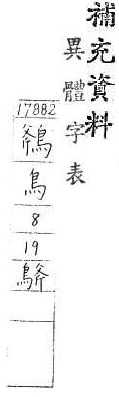 補充資料
異體字表
17882
鳥
8
19